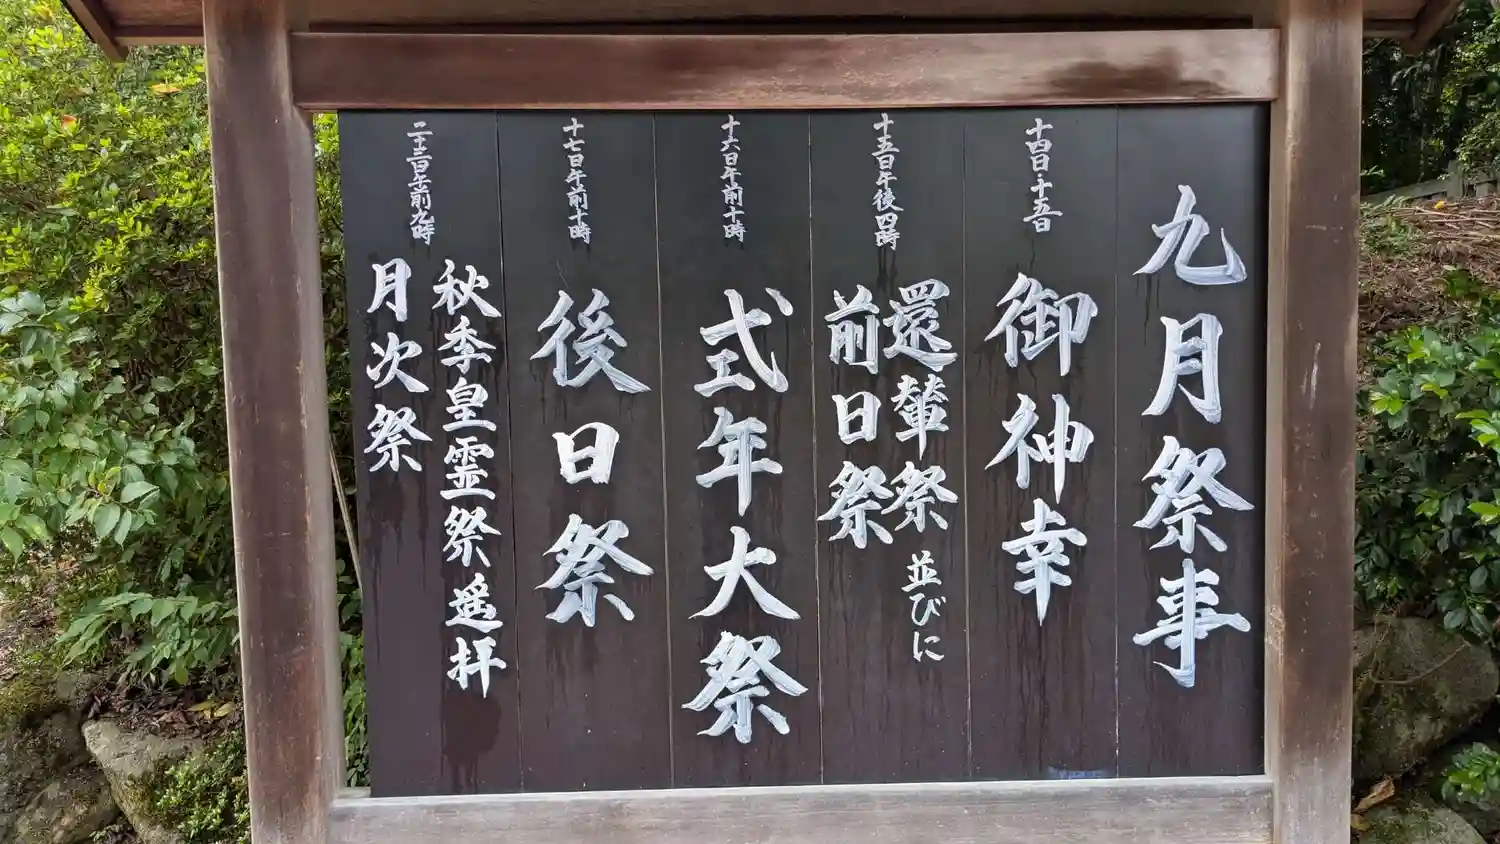 九月祭事
十四日・十五日
御神幸
十五日午後四時
還輦祭並びに
前日祭
十六日午前十時
式年大祭
十七日午前十時
後日祭
二十三日午前九時
秋季皇霊祭遥拝
月次祭